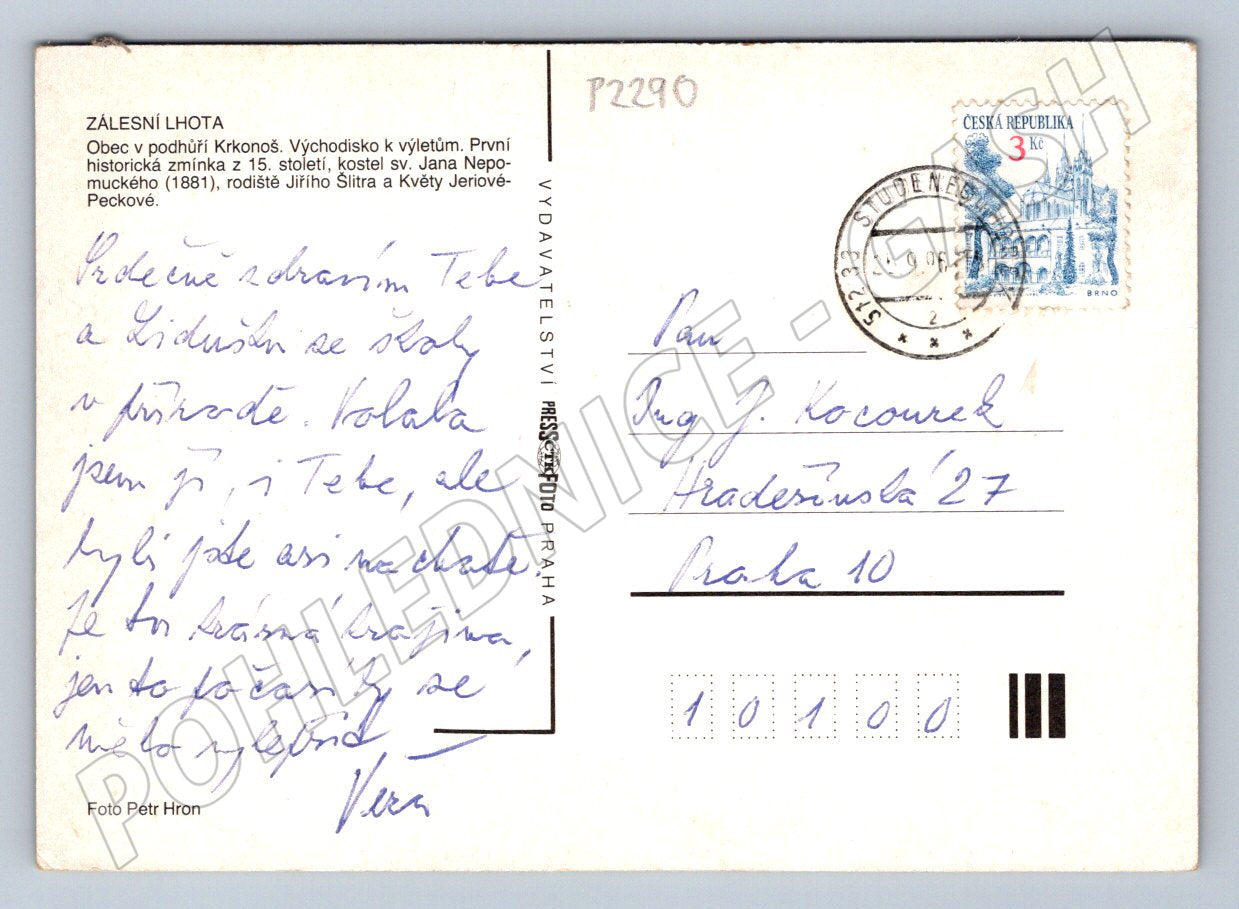 P2290
ZÁLESNÍ LHOTA
Obec v podhůří Krkonoš. Východisko k výletům. První
historická zmínka z 15. století, kostel sv. Jana Nepo-
muckého (1881), rodiště Jiřího Šlitra a Květy Jeriové-
Peckové.
Srdečně zdravím Tebe
a Lidušku ze školy
v přírodě. Volala
jsem jí, i Tebe, ale
byli jste asi na chatě.
Je to krásná krajina,
jen to počasí by se
mělo vylepšit
Věra
Foto Petr Hron
VYDAVATELSTVÍ PRESSFOTO PRAHA
ČTK
ČESKÁ REPUBLIKA
3 Kč
BRNO
512 33 STUDENEC U HOR
9.96
2
Pan
Ing J. Kocourek
Hradešínská 27
Praha 10
10100
POHLEDNICE - GASH